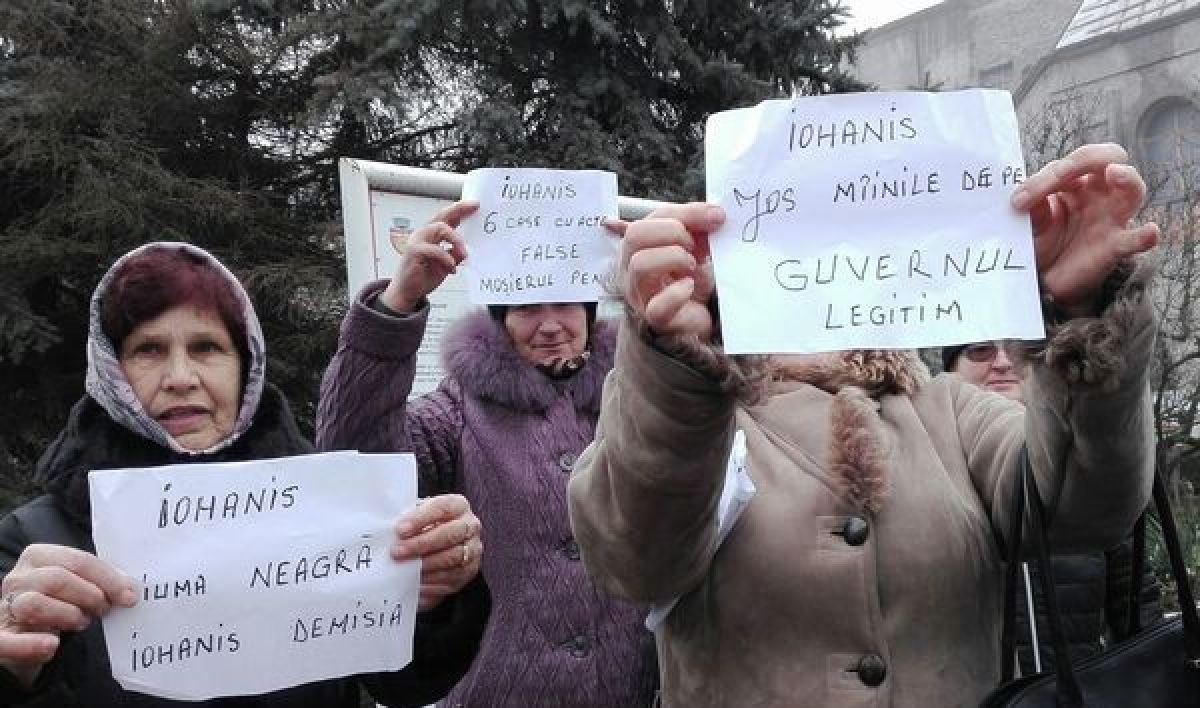 IOHANIS
CIUMA NEAGRĂ
IOHANIS DEMISIA
IOHANIS
6 CASE CU ACTE
FALSE
MOȘIERUL PENAL
IOHANIS
JOS MÎINILE DE PE
GUVERNUL
LEGITIM